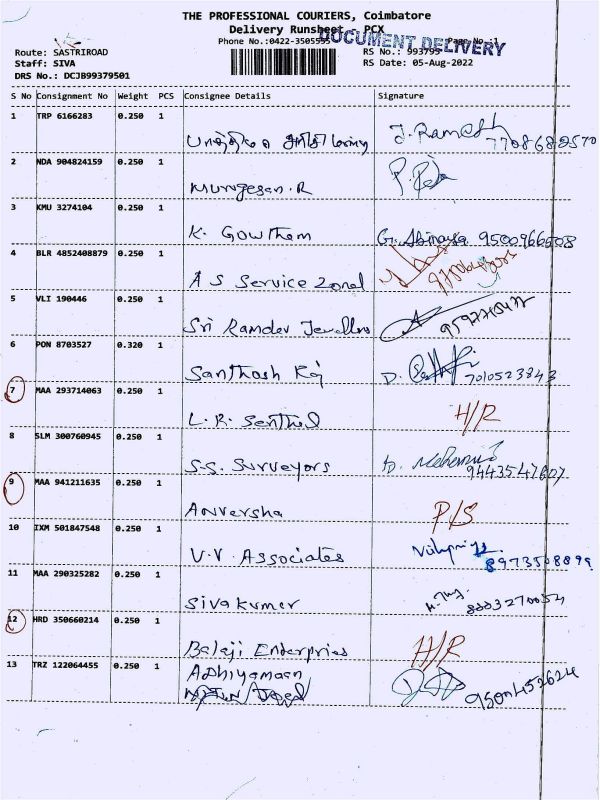 THE PROFESSIONAL COURIERS, Coimbatore
Delivery Runsheet PCX
Phone No.:0422-3505555 Page No.:1
DOCUMENT DELIVERY
Route: SASTRIROAD RS No.: 993795
Staff: SIVA RS Date: 05-Aug-2022
DRS No.: DCJB99379501
S No Consignment No Weight PCS Consignee Details Signature
1 TRP 6166283 0.250 1
J. Ramesh
2 NDA 904824159 0.250 1
Murugesan.R
3 KMU 3274104 0.250 1
K. Gowtham G. Abinaya 9500966508
4 BLR 4852408879 0.250 1
A S Service Zonal
5 VLI 190446 0.250 1
Sri Ramdev Jewellers
6 PON 8703527 0.320 1
Santhosh Raj D. 7010523843
7 MAA 293714063 0.250 1
L.R. Senthil H/R
8 SLM 300760945 0.250 1
S.S. Surveyors 9443547607
9 MAA 941211635 0.250 1
Anversha P/S
10 IXM 501847548 0.250 1
V.V. Associates 8973508899
11 MAA 290325282 0.250 1
Sivakumar 8883270054
12 HRD 350660214 0.250 1
Balaji Enterpries H/R
13 TRZ 122064455 0.250 1
Adhiyamaan
9500452624